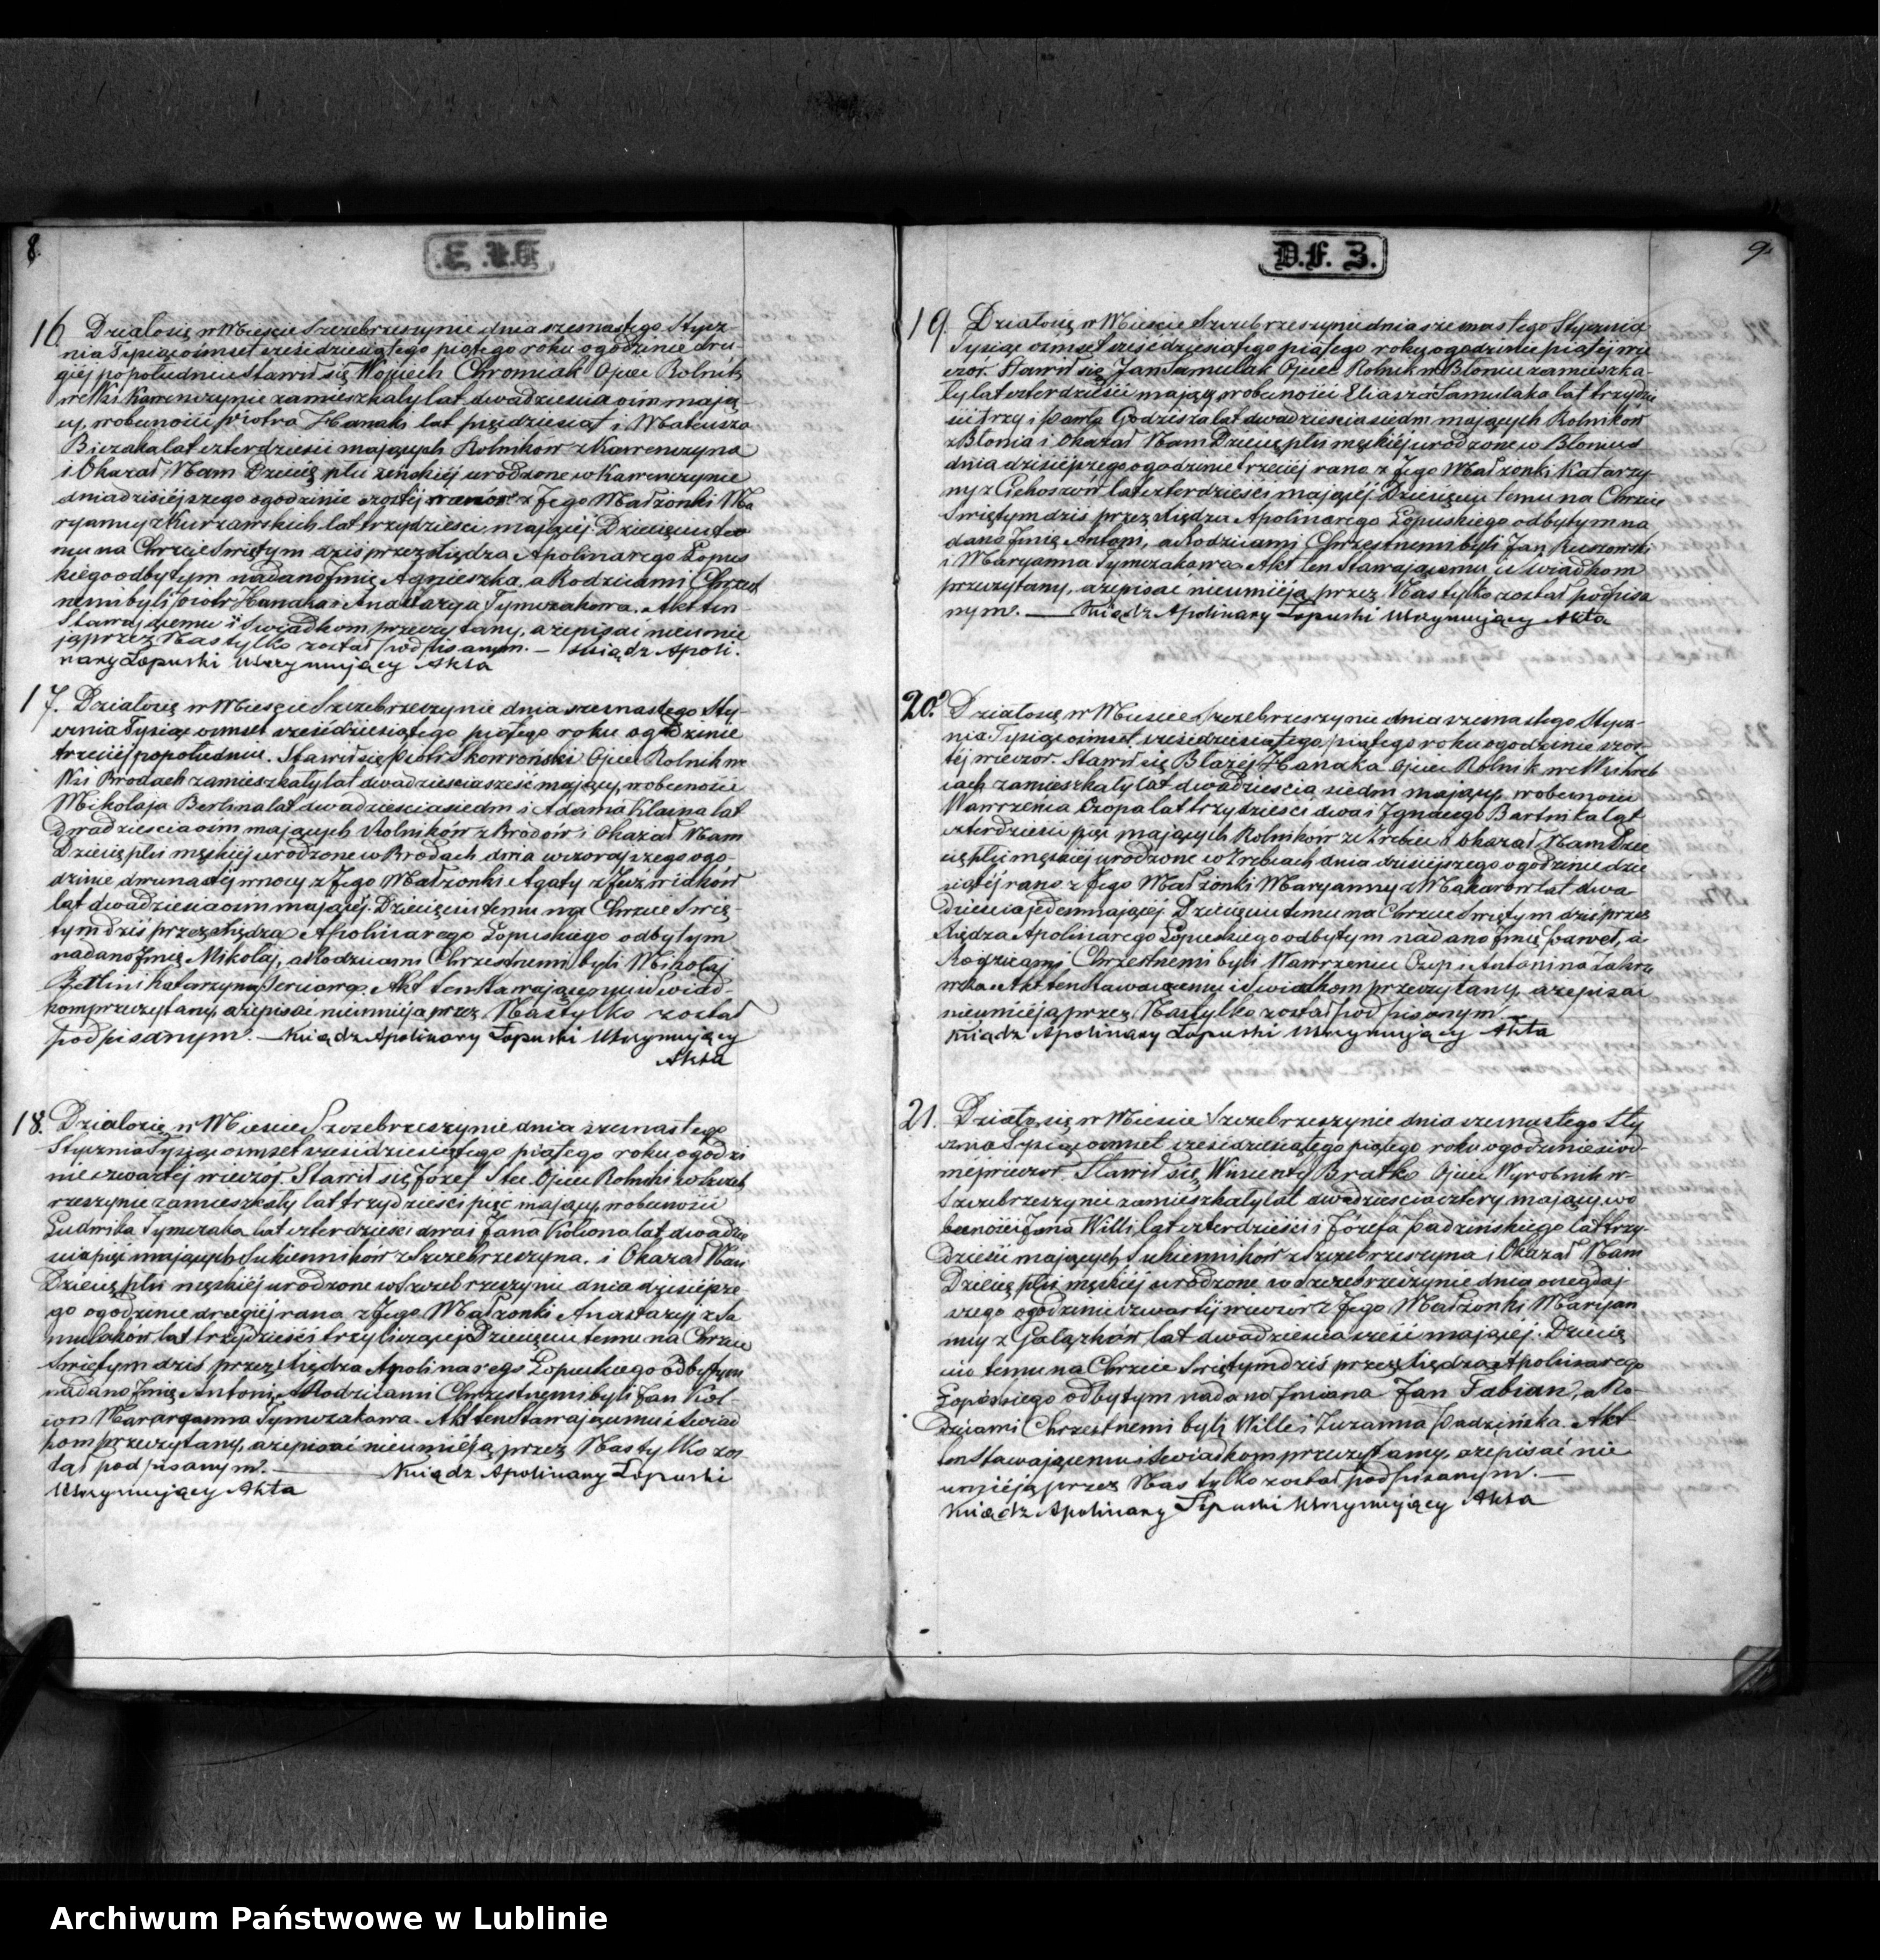 8.
16. Działo się w Mieście Szczebrzeszynie dnia szesnastego Stycz-
nia Tysiąc ośmset sześćdziesiątego piątego roku o godzinie dru-
giéj po południu Stawił się Wojciech Chromiak Ojciec Rolnik
we Wsi Kawenczynie zamieszkały lat dwadzieścia ośm mają-
cy, w obecności Piotra Hanaki lat pięćdziesiąt i Mateusza
Biezaka lat czterdzieści mających Rolników z Kawenczyna
i Okazał Nam Dziecię płci żeńskiéj urodzone w Kawenczynie
dnia dzisiéjszego o godzinie szóstéj z Jego Małżonki Ma
ryanny z Kurzawskich lat trzydzieści mającéj Dziecięciu te
mu na Chrzcie Swiętym dziś przez Księdza Apolinarego Łopus
kiego odbytym nadano Imię Agnieszka, a Rodzicami Chrzest
nemi byli Piotr Hanaka i Tymczakowa. Akt ten
Stawającemu i Swiadkom przeczytany, a że pisać nieumie
ją przez Nas tylko został podpisanym. — Ksiądz Apoli-
nary Łopuski Utrzymujący Akta
17. Działo się w Mieście Szczebrzeszynie dnia szesnastego Sty-
cznia Tysiąc ośmset sześćdziesiątego piątego roku o godzinie
trzeciéj popołudniu. Stawił się Piotr Skowroński Ojciec Rolnik we
Wsi Brodach zamieszkały lat dwadzieścia sześć mający, w obecności
Mikołaja Berlina lat dwadzieścia siedm i Adama Klasna lat
dwadzieścia ośm mających Rolników z Brodów i Okazał Nam
Dziecię płci męzkiéj urodzone w Brodach dnia wczorajszego o go-
dzinie dwunastéj w nocy z Jego Małżonki Agaty z Juźwiaków
lat dwadzieścia ośm mającéj. Dziecięciu temu na Chrzcie Swię-
tym dziś przez Księdza Apolinarego Łopuskiego odbytym
nadano Imię Mikołaj, a Rodzicami Chrzestnemi byli Mikołaj
Katarzyna Akt ten Stawającemu i Swiad-
kom przeczytany, a że pisać nieumieją przez Nas tylko został
podpisanym. — Ksiądz Apolinary Łopuski Utrzymujący
Akta
18. Działo się w Mieście Szczebrzeszynie dnia szesnastego
Stycznia Tysiąc ośmset sześćdziesiątego piątego roku o godzi
nie czwartéj wieczór. Stawił się Józef Stec Ojciec Rolnik w Szczeb
rzeszynie zamieszkały lat trzydzieści pięć mający, w obecności
Ludwika Tymczaka lat czterdzieści dwa i Jana Kolsona lat dwadzie
ścia pięć mających Sukienników z Szczebrzeszyna, i Okazał Nam
Dziecię płci męzkiéj urodzone w Szczebrzeszynie dnia dzisiéjsze-
go o godzinie drugiéj rano z Jego Małżonki Anastazyi z Sa
mulaków lat trzydzieści trzy liczącéj Dziecięciu temu na Chrzcie
Swiętym dziś przez Księdza Apolinarego Łopuskiego odbytym
nadano Imię Antoni, a Rodzicami Chrzestnemi byli Jan Kol-
son Tymczakowa. Akt ten Stawającemu i Swiad
kom przeczytany, a że pisać nieumieją przez Nas tylko zos-
tał podpisanym. — Ksiądz Apolinary Łopuski
Utrzymujący Akta
D.F. Z.
9.
19. Działo się w Mieście Szczebrzeszynie dnia szesnastego Stycznia
Tysiąc ośmset sześćdziesiątego piątego roku o godzinie piątéj wie
czór. Stawił się Jan Samulak Ojciec Rolnik w Błoniu zamieszka-
ły lat czterdzieści mający, w obecności Eliasza Samulaka lat trzydzie
ści trzy i Pawła Godzisza lat dwadzieścia siedm mających Rolników
z Błonia i Okazał Nam Dziecię płci męzkiéj urodzone w Błoniu
dnia dzisiéjszego o godzinie trzeciéj rano z Jego Małżonki Katarzy-
ny z Cichoszów lat czterdzieści mającéj. Dziecięciu temu na Chrzcie
Swiętym dziś przez Księdza Apolinarego Łopuskiego odbytym na
dano Imię Antoni, a Rodzicami Chrzestnemi byli Jan
i Maryanna Tymczakowa. Akt ten Stawającemu i Swiadkom
przeczytany, a że pisać nieumieją przez Nas tylko został podpisa
nym. — Ksiądz Apolinary Łopuski Utrzymujący Akta
20. Działo się w Mieście Szczebrzeszynie dnia szesnastego Stycz-
nia Tysiąc ośmset sześćdziesiątego piątego roku o godzinie szós-
téj wieczór. Stawił się Błażej Hanaka Ojciec Rolnik we Wsi Źreb
cach zamieszkały lat dwadzieścia siedm mający, w obecności
Wawrzeńca Czopa lat trzydzieści dwa i Ignacego Bartnika lat
czterdzieści pięć mających Rolników ze Źrebiec i Okazał Nam Dzie
cię płci męzkiéj urodzone w Źrebcach dnia dzisiejszego o godzinie dzie
siątéj rano z Jego Małżonki Maryanny z Makarów lat dwa
dzieścia jeden mającéj. Dziecięciu temu na Chrzcie Swiętym dziś przez
Księdza Apolinarego Łopuskiego odbytym nadano Imię Paweł, a
Rodzicami Chrzestnemi byli Wawrzeniec Czop i Antonina
Akt ten Stawającemu i Swiadkom przeczytany, a że pisać
nieumieją przez Nas tylko został podpisanym.
Ksiądz Apolinary Łopuski Utrzymujący Akta
21. Działo się w Mieście Szczebrzeszynie dnia szesnastego Sty
cznia Tysiąc ośmset sześćdziesiątego piątego roku o godzinie siód-
méj wieczór. Stawił się Wincenty Bratko Ojciec Wyrobnik w-
Szczebrzeszynie zamieszkały lat dwadzieścia cztery mający, w o
becności Jana Willi lat czterdzieści i Józefa Padzińskiego lat trzy-
dzieści mających Sukienników z Szczebrzeszyna i Okazał Nam
Dziecię płci męzkiéj urodzone w Szczebrzeszynie dnia onegdaj-
szego o godzinie czwartéj wieczór z Jego Małżonki Maryan
ny z Gałązków lat dwadzieścia sześć mającéj. Dziecię
ciu temu na Chrzcie Swiętym dziś przez Księdza Apolinarego
Łopuskiego odbytym nadano Imiona Jan Fabian, a Ro-
dzicami Chrzestnemi byli Wille i Zuzanna Padzińska. Akt
ten Stawającemu i Swiadkom przeczytany, a że pisać nie
umieją przez Nas tylko został podpisanym. —
Ksiądz Apolinary Łopuski Utrzymujący Akta
Archiwum Państwowe w Lublinie